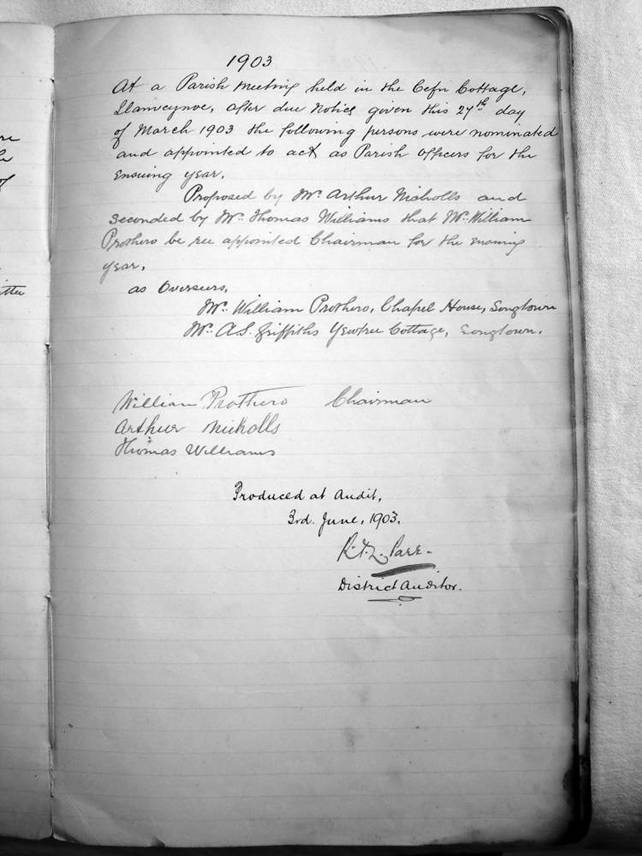 1903
At a Parish Meeting held in the Cefn Cottage,
Llanveynoe, after due Notice given this 27th day
of March 1903 the following persons were nominated
and appointed to act as Parish Officers for the
Ensuing year.
Proposed by Mr. Arthur Nicholls and
Seconded by Mr. Thomas Williams that Mr. William
Prothero be ree appointed Chairman for the ensuing
year.
as Overseers,
Mr. William Prothero, Chapel House, Longtown
Mr. A.S. Griffiths Yewtree Cottage, Longtown.
William Prothero Chairman
Arthur Nicholls
Thomas Williams
Produced at Audit,
3rd. June, 1903.
District Auditor.